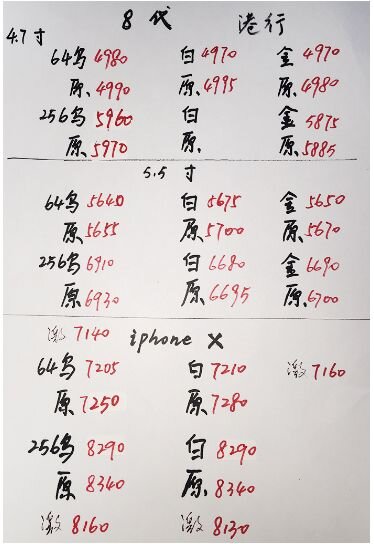 8代 港行
4.7寸
64乌 4980 白 4970 金 4970
原 4990 原 4995 原 4980
256乌 5960 白 金 5875
原 5970 原 原 5885
5.5寸
64乌 5640 白 5675 金 5650
原 5655 原 5700 原 5670
256乌 6910 白 6680 金 6690
原 6930 原 6695 原 6700
激 7140 iphone X
64乌 7205 白 7210 激 7160
原 7250 原 7280
256乌 8290 白 8290
原 8340 原 8340
激 8160 激 8130